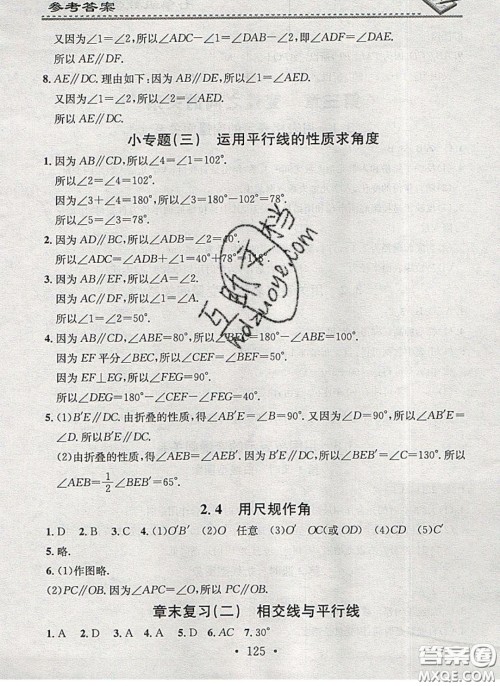 参考答案
又因为∠1=∠2,所以∠ADC-∠1=∠DAB-∠2,即∠ADF=∠DAE.
所以AE∥DF.
8. AE∥DC. 理由如下:因为AB∥DE,所以∠1=∠AED.
又因为∠1=∠2,所以∠2=∠AED.
所以AE∥DC.
小专题(三) 运用平行线的性质求角度
1. 因为AB∥CD,所以∠4=∠1=102°.
所以∠2=∠4=102°.
因为∠3+∠4=180°,所以∠3=180°-102°=78°.
所以∠5=∠3=78°.
2. 因为AD∥BC,所以∠ADB=∠2=40°.
所以∠ADC=∠ADB+∠1=40°+78°=118°.
3. 因为AB∥EF,所以∠A=∠2.
因为AC∥DF,所以∠1=∠A.
所以∠1=∠2=50°.
4. 因为∠ABE=80°,所以∠BEC=180°-∠ABE=100°.
因为EF平分∠BEC,所以∠CEF=∠BEF=50°.
因为EF⊥EG,所以∠FEG=90°.
所以∠DEG=180°-∠CEF-∠FEG=40°.
5. (1)B′E∥DC. 由折叠的性质,得∠AB′E=∠B=90°. 又因为∠D=90°,所以∠AB′E=
∠D. 所以B′E∥DC.
(2)由折叠的性质,得∠AEB=∠AEB′. 因为B′E∥DC,所以∠BEB′=∠C=130°. 所以
∠AEB=1/2∠BEB′=65°.
2.4 用尺规作角
1. D 2. B 3. C 4. (1)O′B′ (2)O 任意 (3)O′ OC(或OD) (4)C′ CD (5)C′
5. 略.
6. (1)作图略.
(2)PC∥OB. 因为∠APC=∠O,所以PC∥OB.
章末复习(二) 相交线与平行线
1. A 2. D 3. A 4. A 5. D 6. AC 7. 30°
· 125 ·
互助文档
hdzuoye.com
答案圈
MXQE.COM